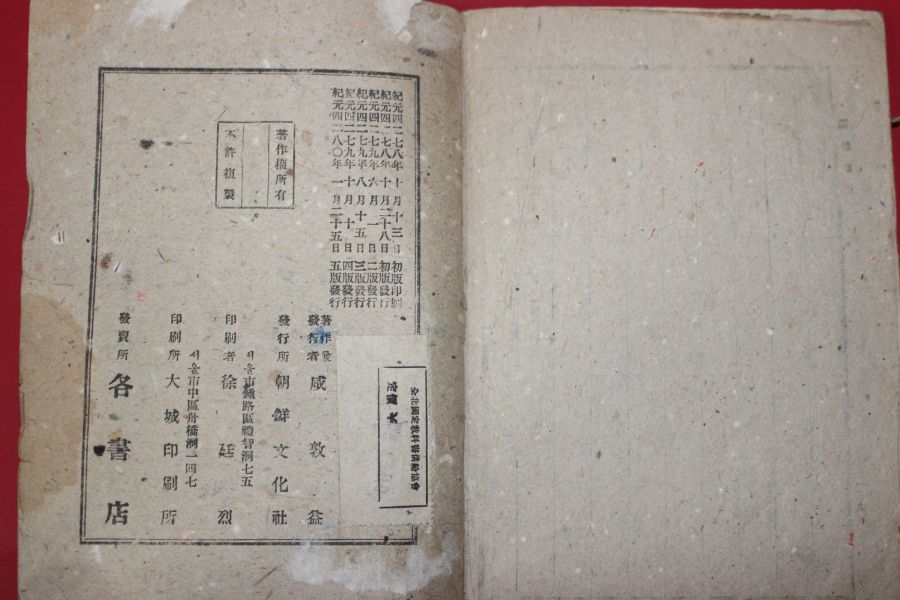 紀元四二七八年十月十三日 初版印刷
紀元四二七八年十月二十八日 初版發行
紀元四二七九年六月一日 二版發行
紀元四二七九年八月十五日 三版發行
紀元四二七九年十月十日 四版發行
紀元四二八〇年一月二十五日 五版發行
著作權所有
不許複製
著作兼
發行者 咸敦益
發行所 朝鮮文化社
서울市鍾路區禮智洞七五
印刷者 徐廷烈
서울市中區舟橋洞一四七
印刷所 大城印刷所
發賣所 各書店
全北國定敎科書供給協會